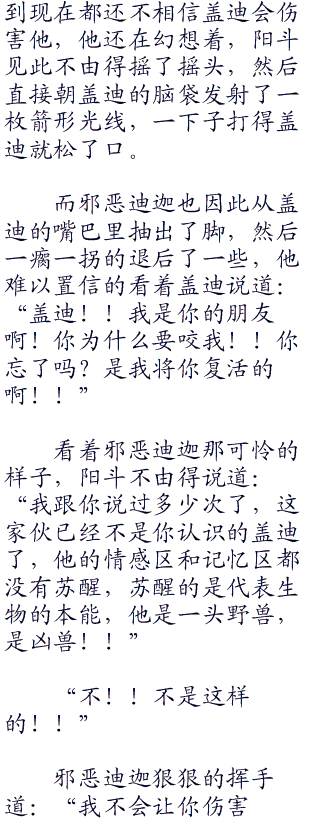 到现在都还不相信盖迪会伤
害他，他还在幻想着，阳斗
见此不由得摇了摇头，然后
直接朝盖迪的脑袋发射了一
枚箭形光线，一下子打得盖
迪就松了口。
而邪恶迪迦也因此从盖
迪的嘴巴里抽出了脚，然后
一瘸一拐的退后了一些，他
难以置信的看着盖迪说道：
“盖迪！！我是你的朋友
啊！你为什么要咬我！！你
忘了吗？是我将你复活的
啊！！”
看着邪恶迪迦那可怜的
样子，阳斗不由得说道：
“我跟你说过多少次了，这
家伙已经不是你认识的盖迪
了，他的情感区和记忆区都
没有苏醒，苏醒的是代表生
物的本能，他是一头野兽，
是凶兽！！”
“不！！不是这样
的！！”
邪恶迪迦狠狠的挥手
道：“我不会让你伤害